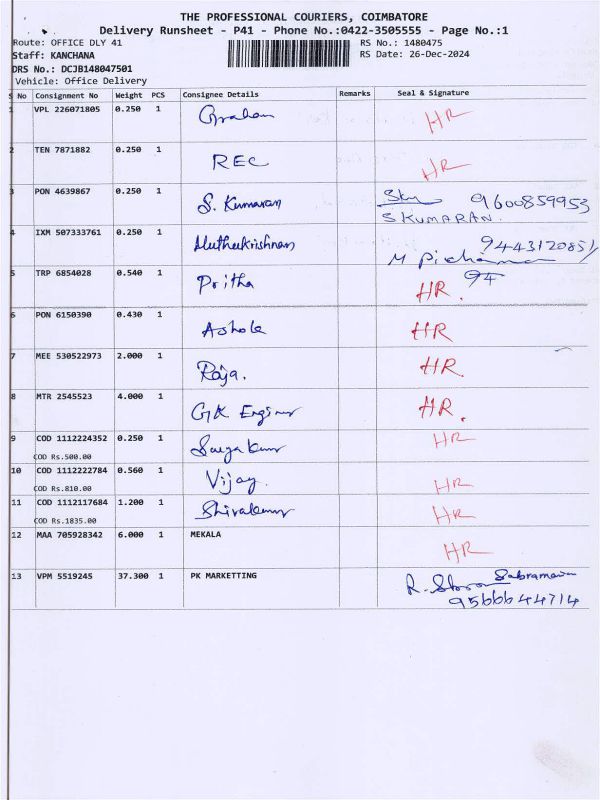 THE PROFESSIONAL COURIERS, COIMBATORE
Delivery Runsheet - P41 - Phone No.:0422-3505555 - Page No.:1
Route: OFFICE DLY 41
RS No.: 1480475
Staff: KANCHANA
RS Date: 26-Dec-2024
DRS No.: DCJB148047501
Vehicle: Office Delivery
S No Consignment No Weight PCS Consignee Details Remarks Seal & Signature
1 VPL 226071805 0.250 1 Graham HR
2 TEN 7871882 0.250 1 REC HR
3 PON 4639867 0.250 1 S. Kumaran 9600859953
S KUMARAN.
4 IXM 507333761 0.250 1 Muthukrishnan 9443120851
M
94
5 TRP 6854028 0.540 1 Pritha HR.
6 PON 6150390 0.430 1 Ashok HR
7 MEE 530522973 2.000 1 Raja. HR.
8 MTR 2545523 4.000 1 GK HR.
9 COD 1112224352 0.250 1 HR
COD Rs.500.00
10 COD 1112222784 0.560 1 Vijay. HR
COD Rs.810.00
11 COD 1112117684 1.200 1 Shivakumar HR
COD Rs.1835.00
12 MAA 705928342 6.000 1 MEKALA HR
13 VPM 5519245 37.300 1 PK MARKETTING R.
9566644714